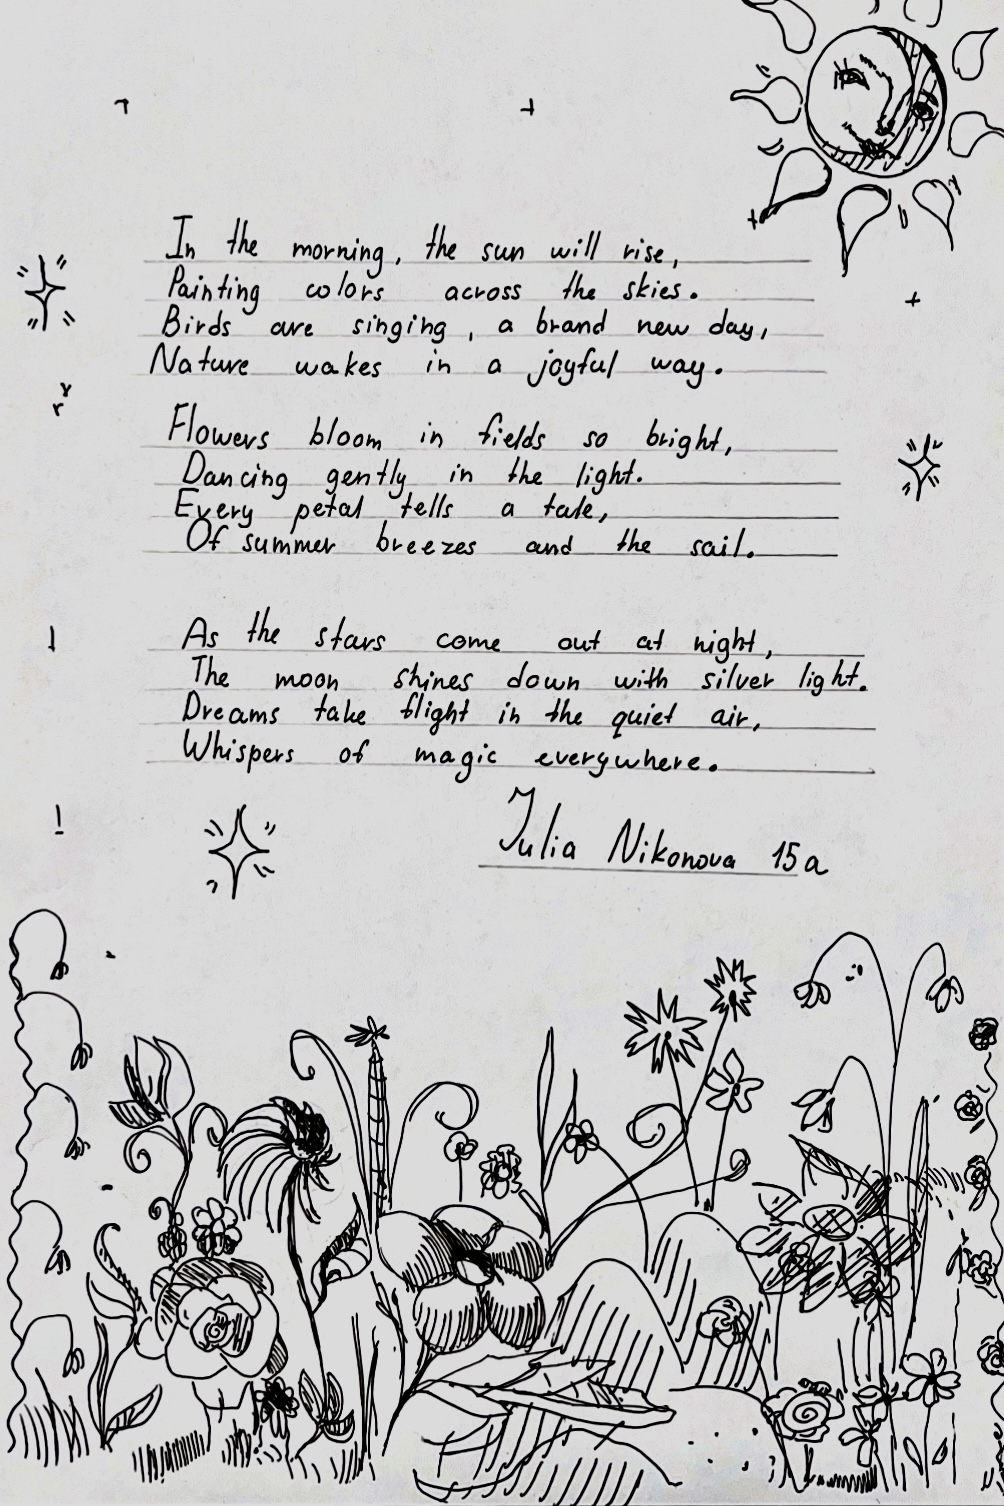 In the morning, the sun will rise,
Painting colors across the skies.
Birds are singing, a brand new day,
Nature wakes in a joyful way.
Flowers bloom in fields so bright,
Dancing gently in the light.
Every petal tells a tale,
Of summer breezes and the sail.
As the stars come out at night,
The moon shines down with silver light.
Dreams take flight in the quiet air,
Whispers of magic everywhere.
Julia Nikonova 15a